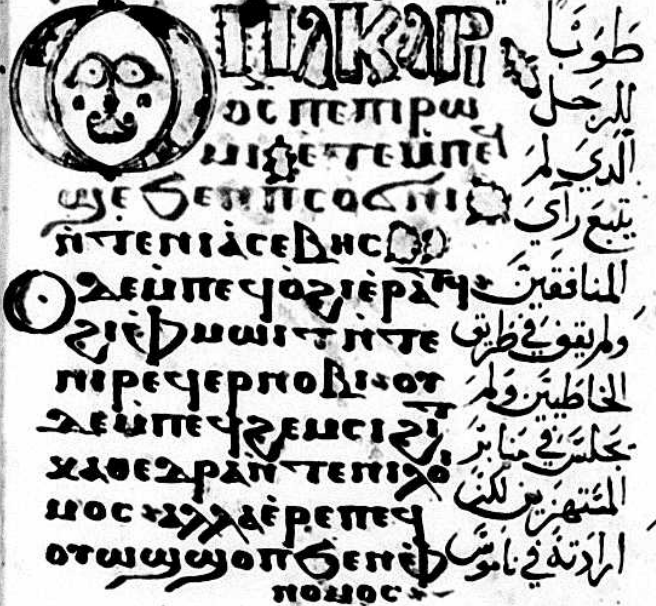 ⲞⲨⲘⲀⲔⲀⲢⲒ
ⲟⲥ ⲡⲉ ⲡⲓⲣⲱ
ⲙⲓ ⲉⲧⲉⲙ̀ⲡⲉϥ
ϣⲉ ϧⲉⲛ ⲡⲥⲟϭⲛⲓ
ⲛ̀ⲧⲉ ⲛⲓⲁ̀ⲥⲉⲃⲏⲥ
Ⲟⲩⲇⲉ ⲙ̀ⲡⲉϥⲟ̀ϩⲓ ⲉ̀ⲣⲁⲧϥ
ϩⲓ ⲫ̀ⲙⲱⲓⲧ ⲛ̀ⲧⲉ
ⲛⲓⲣⲉϥⲉⲣⲛⲟⲃⲓ ⲟⲩ
ⲇⲉ ⲙ̀ⲡⲉϥϩⲉⲙⲥⲓ ϩⲓⲧ
ⲕⲁⲑⲉⲇⲣⲁ ⲛ̀ⲧⲉ ⲛⲓⲗⲟⲓ
ⲙⲟⲥ ⲁⲗⲗⲁ ⲉ̀ⲣⲉ ⲡⲉϥ
ⲟⲩⲱϣ ϣⲟⲡ ϧⲉⲛ ⲫ̀
ⲛⲟⲙⲟⲥ
طوبا
للرجل
الذي لم
يتبع رآي
المنافقين
ولم يقف في طريق
الخاطين ولم
يجلس في منابر
المستهزين لكن
ارادته في ناموس